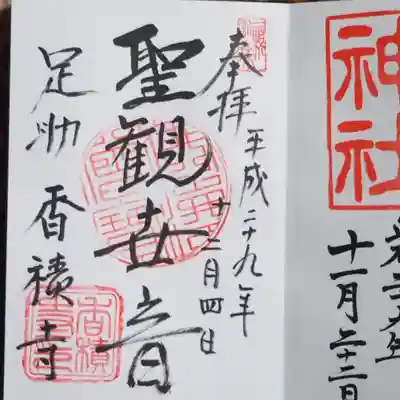 奉拝
平成二十九年
十二月四日
聖観世音
足助 香積寺
神社
十一月二十二日